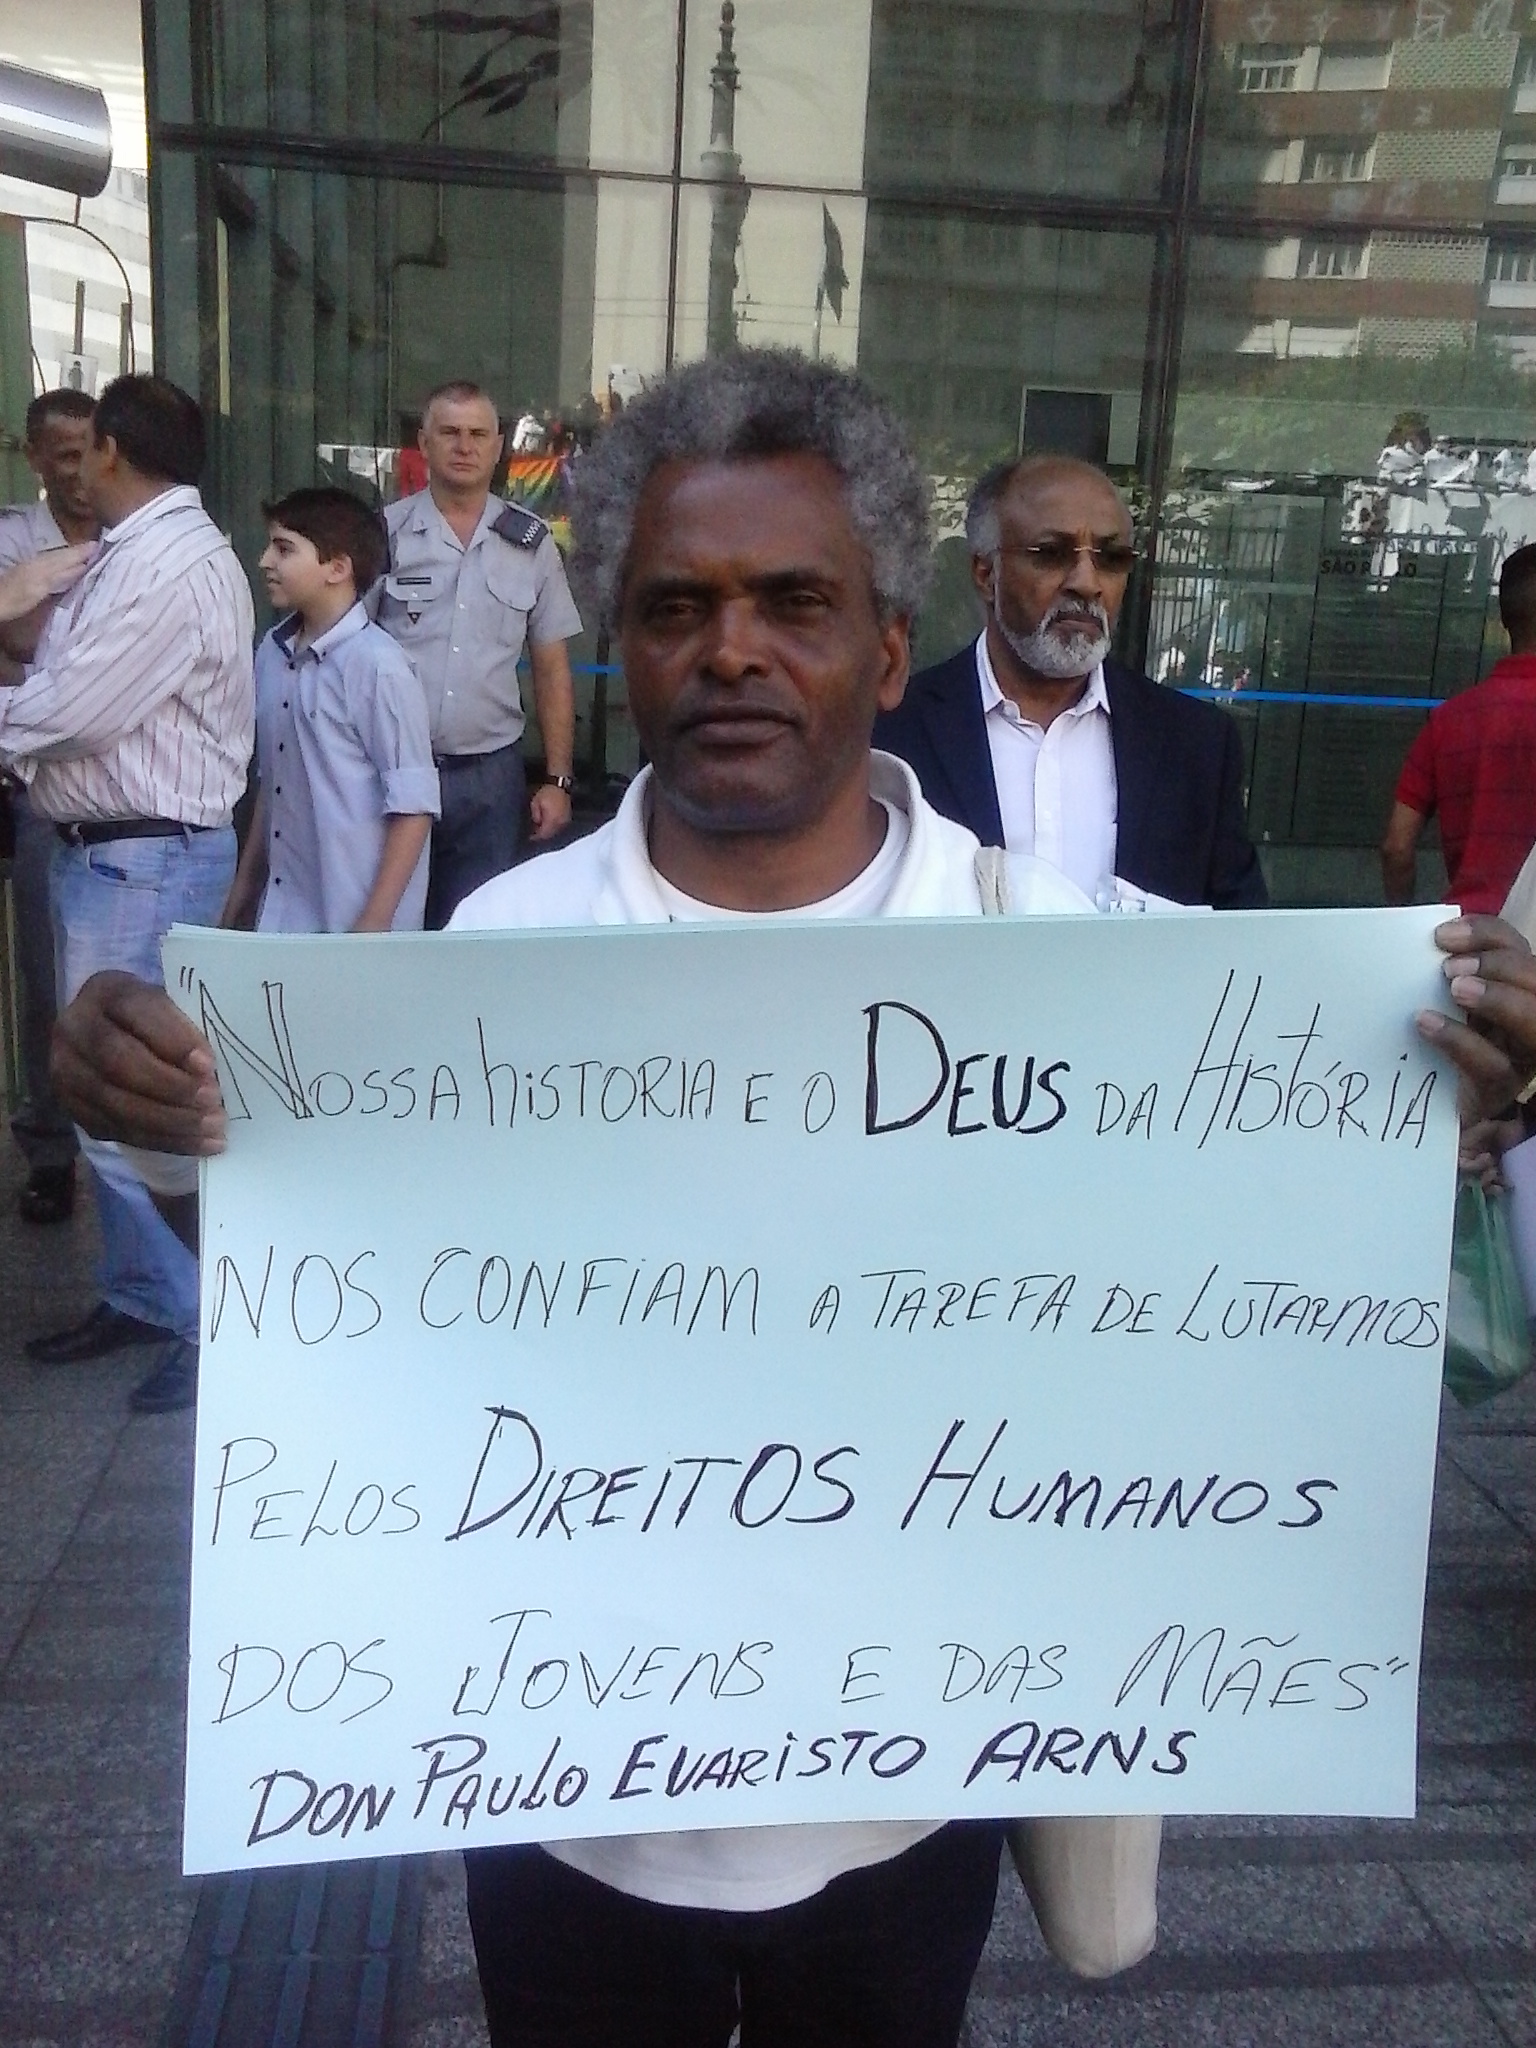 "NOSSA hISTORIA E O DEUS DA HISTÓRIA
NOS CONFIAM A TAREFA DE LUTARMOS
PELOS DIREITOS HUMANOS
DOS JOVENS E DAS MÃES"
DON PAULO EVARISTO ARNS
SÃO PAULO